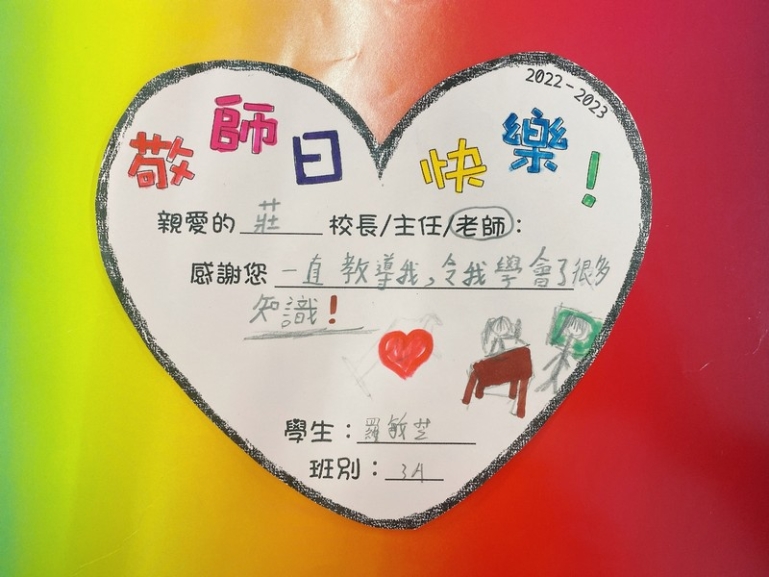 2022-2023
敬師日快樂!
親愛的 莊 校長/主任/老師:
感謝您 一直教導我,令我學會了很多
知識!
學生:羅敏芝
班別:3A